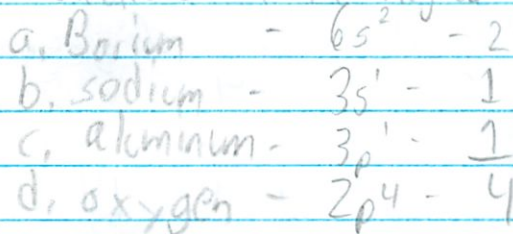 a. Barium - 6s² - 2
b. sodium - 3s¹ - 1
c. aluminum - 3p¹ - 1
d. oxygen - 2p4 - 4